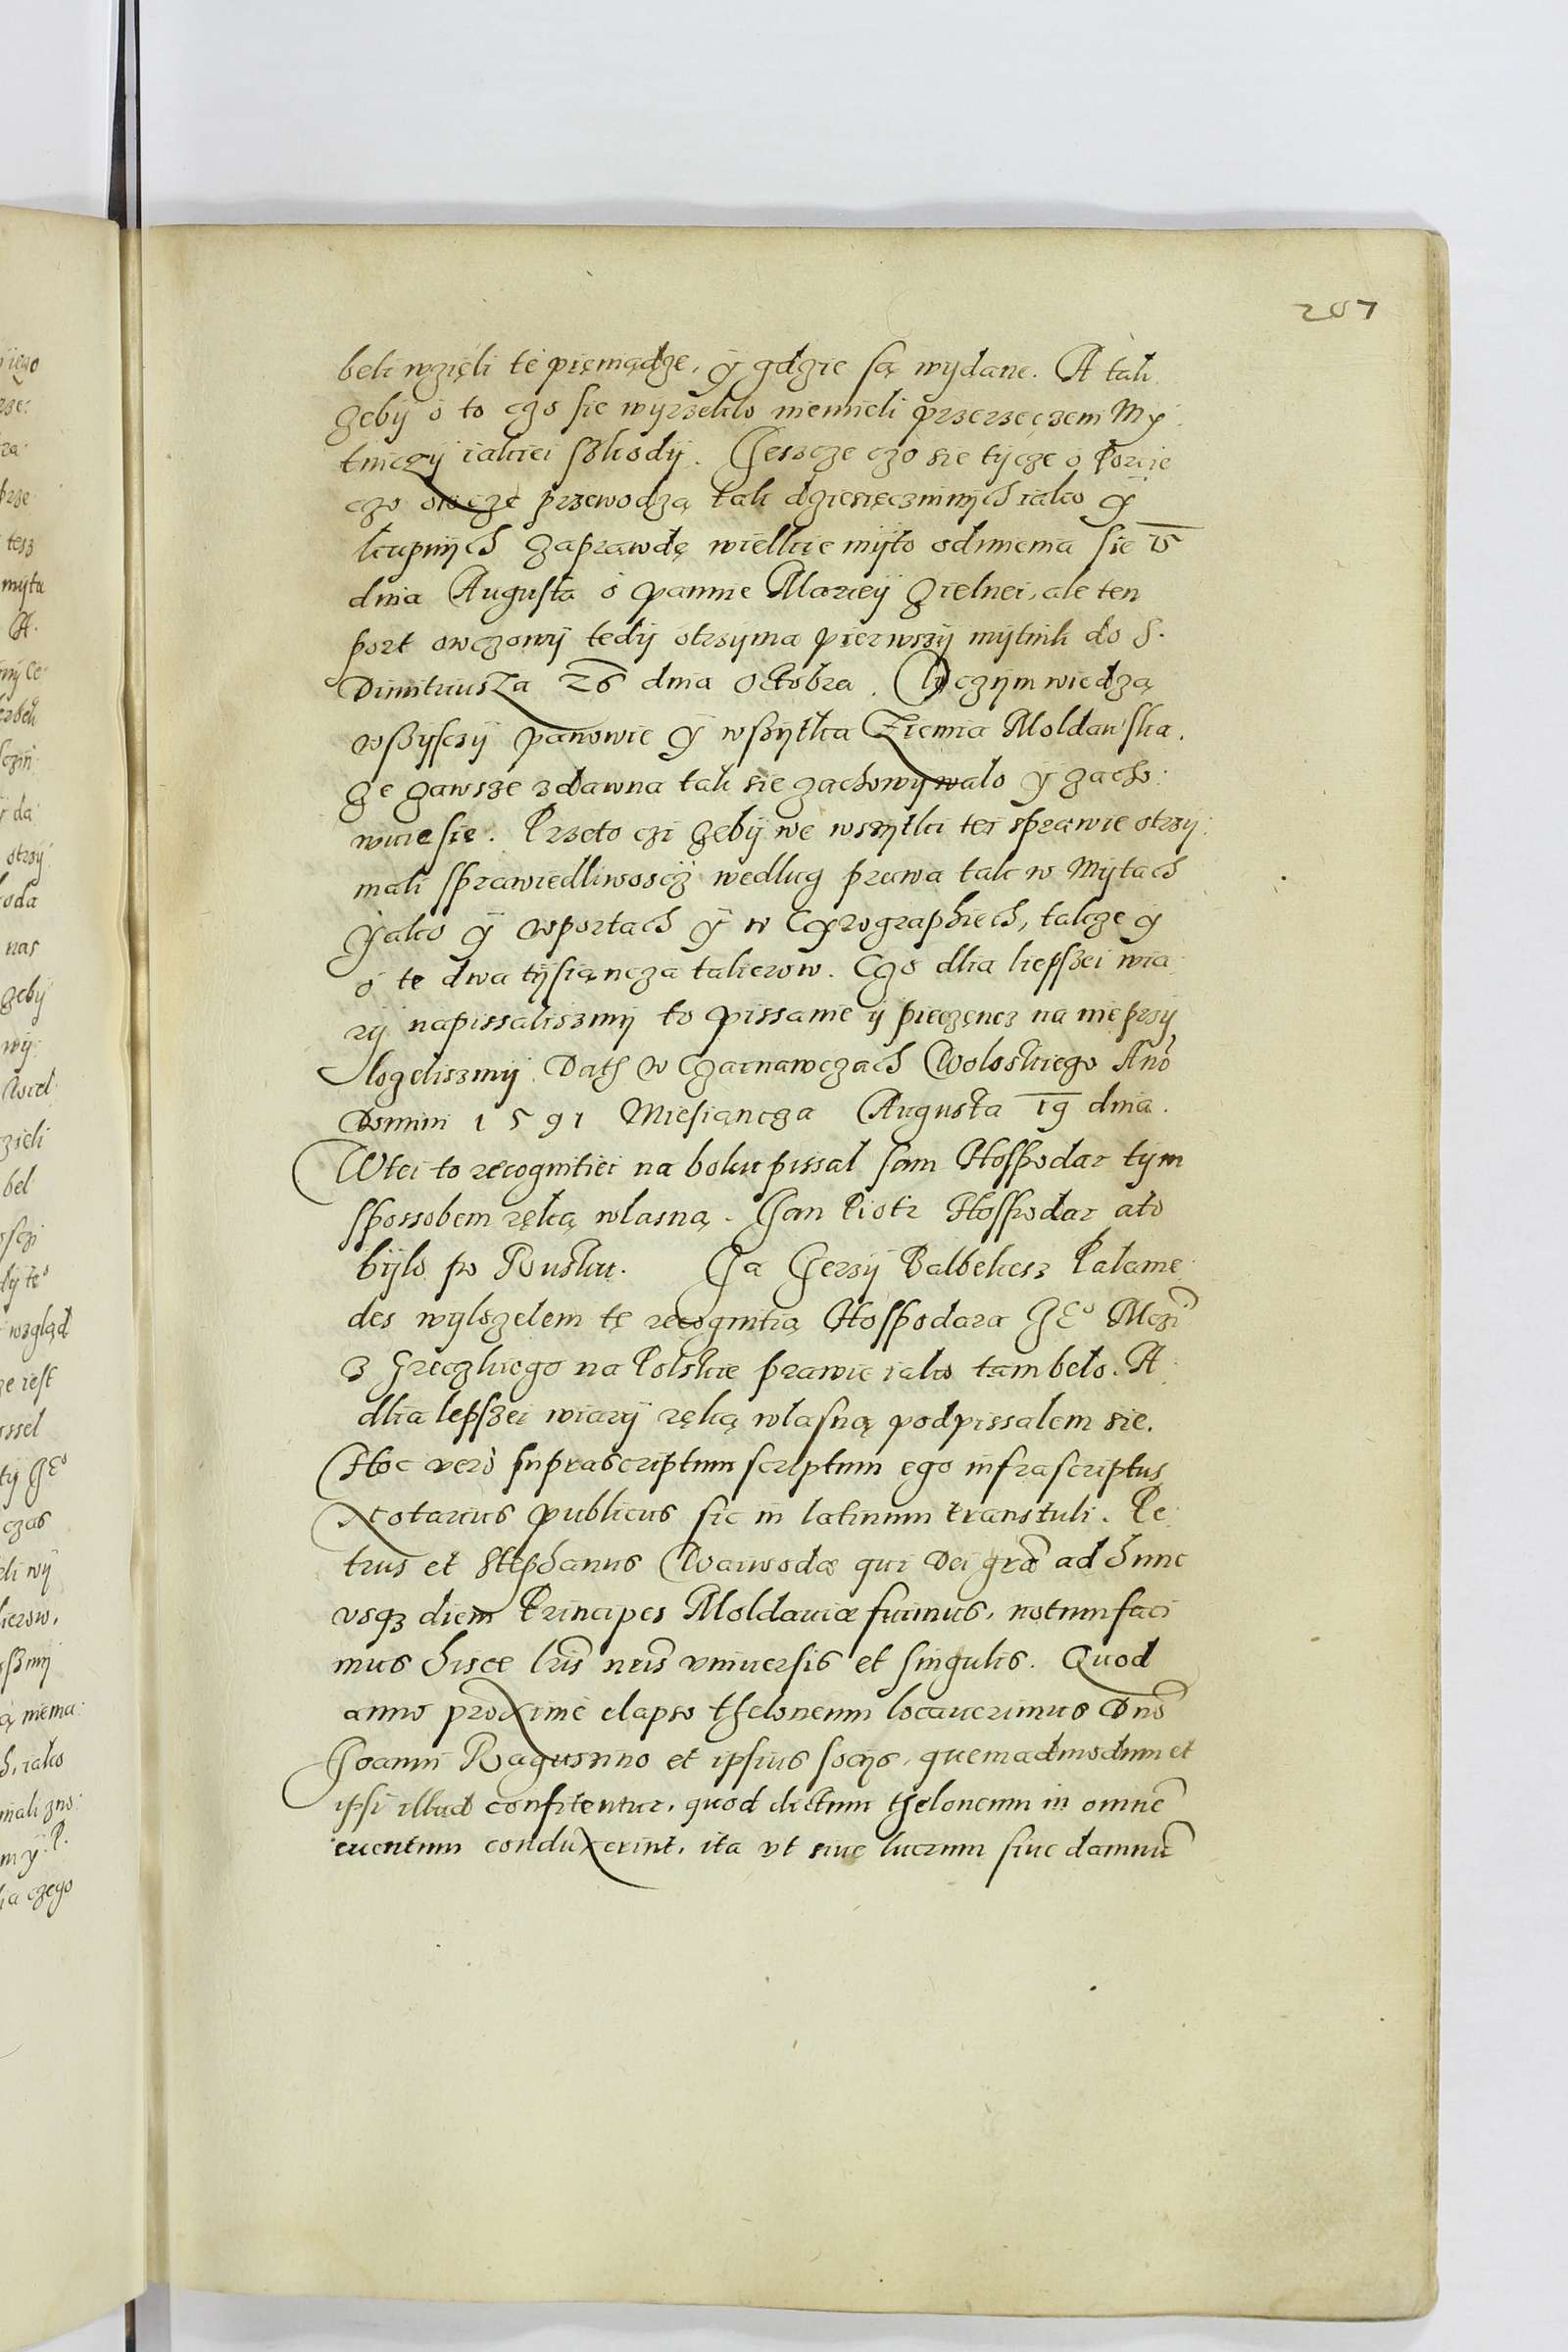 207
beli wzięli te pięniądze, ÿ gdzie są wydane. A tak
żebÿ o to czo sie wÿrzekło niemieli przerzeczeni My
tniczÿ iakiei szkodÿ. Jescze czo sie tÿcze o Porcie
czo owcze przewodzą tak dziesięczinnÿch iako ÿ
kupnÿch zaprawdę wielkie mÿto odmienia sie 15
dnia Augusta o pannie Mariey Zielnei, ale ten
port owczowÿ tedÿ otrzyma pierwszÿ mÿtnik do S.
Dimitriusza 26 dnia Octobra. O czÿm wiedzą
wszÿsczÿ panowie ÿ wszÿtka Ziemia Moldawska,
że zawsze zdawna tak sie zachowÿwało ÿ zacho:
wuie sie. Przeto czi żebÿ we wszÿtki tei sprawie otrzÿ:
mali sprawiedliwoscz według prawa tak w Mÿtach
Jako ÿ w portach ÿ w Cyrographiech, takze ÿ
o te dwa tÿsiąncza talierow. Czo dlia liepszei wia:
rÿ napissaliszmÿ to pissanie ÿ pieczęncz na nie przÿ
lozeliszmÿ. Dath w Czarnawczach Woloskiego Ano
Domini 1591 Miesiąncza Augusta 19 dnia.
W tei to recognitiei na boku pissal sam Hospodar tym
spossobem ręką własną. Jan Piotr Hospodar ato
bÿlo po Rusku. Ja Jerzÿ Balbekesz Palame
des wÿlozelem tę recognitią Hospodara JEo Mczi
z Greczkiego na Polskie prawie iako tam beło. A
dlia lepszei wiarÿ ręką własną podpissalem sie.
Hoc verò suprascriptum scriptum ego infrascriptus
Notarius publicus sic in latinum transtuli. Pe
trus et Stephanus Waiwodæ qui Dei gra ad hunc
vsqz diem Principes Moldauiæ fuimus, notum faci
mus hisce lris nris vniuersis et singulis. Quod
anno proximè elapso theloneum locauerimus Dno
Joanni Ragusino et ipsius socijs, quemadmodum et
ipsi illud confitentur, quod dictum theloneum in omne
euentum conduxerint, ita vt siue lucrum siue damnu